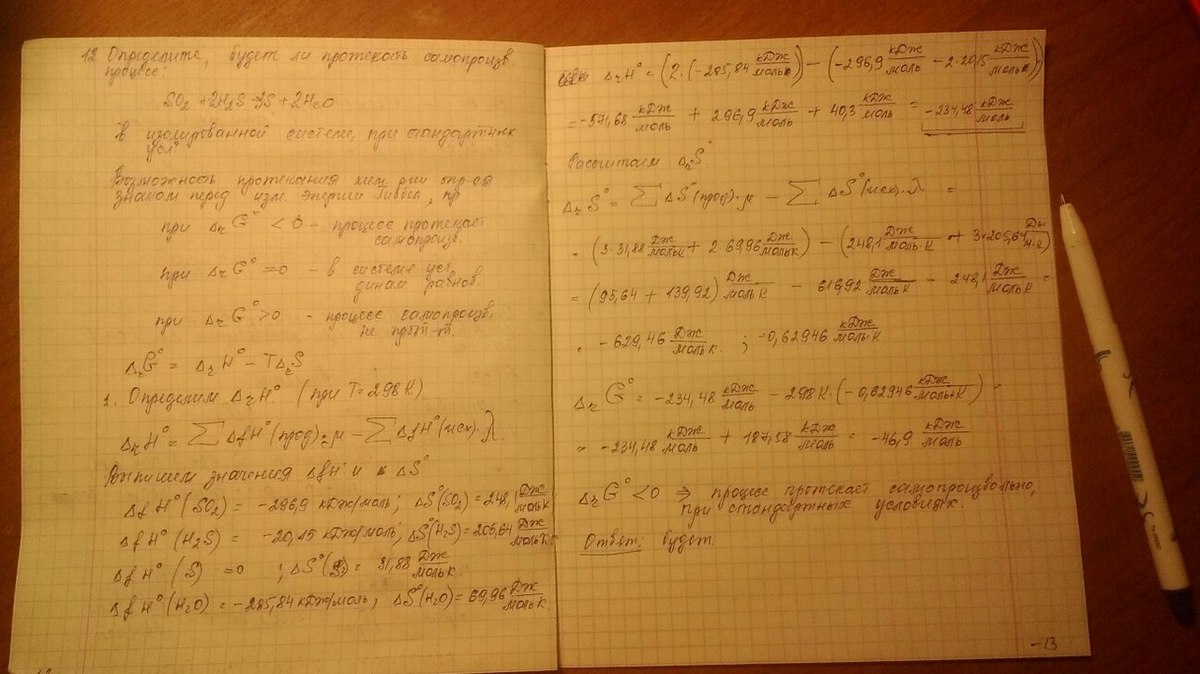 12 Определите, будет ли протекать самопроизв.
процесс:
SO₂ + 2H₂S = 3S + 2H₂O
В изолированной системе, при стандартных
усл.
Возможность протекания хим. р-ии опр-ся
знаком перед изм. энергии Гиббса,
при ΔᵣG° < 0 - процесс протекает
самопроизв.
при ΔᵣG° = 0 - в системе уст
динам равнов.
при ΔᵣG° > 0 - процесс самопроизв.
не прот-т.
ΔᵣG° = ΔᵣH° - TΔᵣS
1. Определим ΔᵣH° (при T = 298 K)
ΔᵣH° = ∑ ΔfH°(прод)·μ - ∑ ΔfH°(исх)·λ.
Выпишем значения ΔfH° и ΔS°
ΔfH°(SO₂) = -296,9 кДж/моль; ΔS°(SO₂) = 248,1 Дж/моль·К
ΔfH°(H₂S) = -20,15 кДж/моль; ΔS°(H₂S) = 205,64 Дж/моль·К
ΔfH°(S) = 0 ; ΔS°(S) = 31,88 Дж/моль·К
ΔfH°(H₂O) = -285,84 кДж/моль; ΔS°(H₂O) = 69,96 Дж/моль·К
ΔᵣH° = (2·(-285,84 кДж/моль)) - (-296,9 кДж/моль - 2·20,15 кДж/моль)
= -571,68 кДж/моль + 296,9 кДж/моль + 40,3 кДж/моль = -234,48 кДж/моль
Рассчитаем ΔᵣS°
ΔᵣS° = ∑ ΔS°(прод)·μ - ∑ ΔS°(исх)·λ =
= (3·31,88 Дж/моль·К + 2 69,96 Дж/моль·К) - (248,1 Дж/моль·К + 3·205,64 Дж/
= (95,64 + 139,92) Дж/моль·К - 616,92 Дж/моль·К - 248,1 Дж/моль·К =
= -629,46 Дж/моль·К ; -0,62946 кДж/моль·К
ΔᵣG° = -234,48 кДж/моль - 298К·(-0,62946 кДж/моль·К) =
= -234,48 кДж/моль + 187,58 кДж/моль = -46,9 кДж/моль
ΔᵣG° < 0 ⇒ процесс протекает самопроизвольно,
при стандартных условиях.
Ответ: будет.
-13